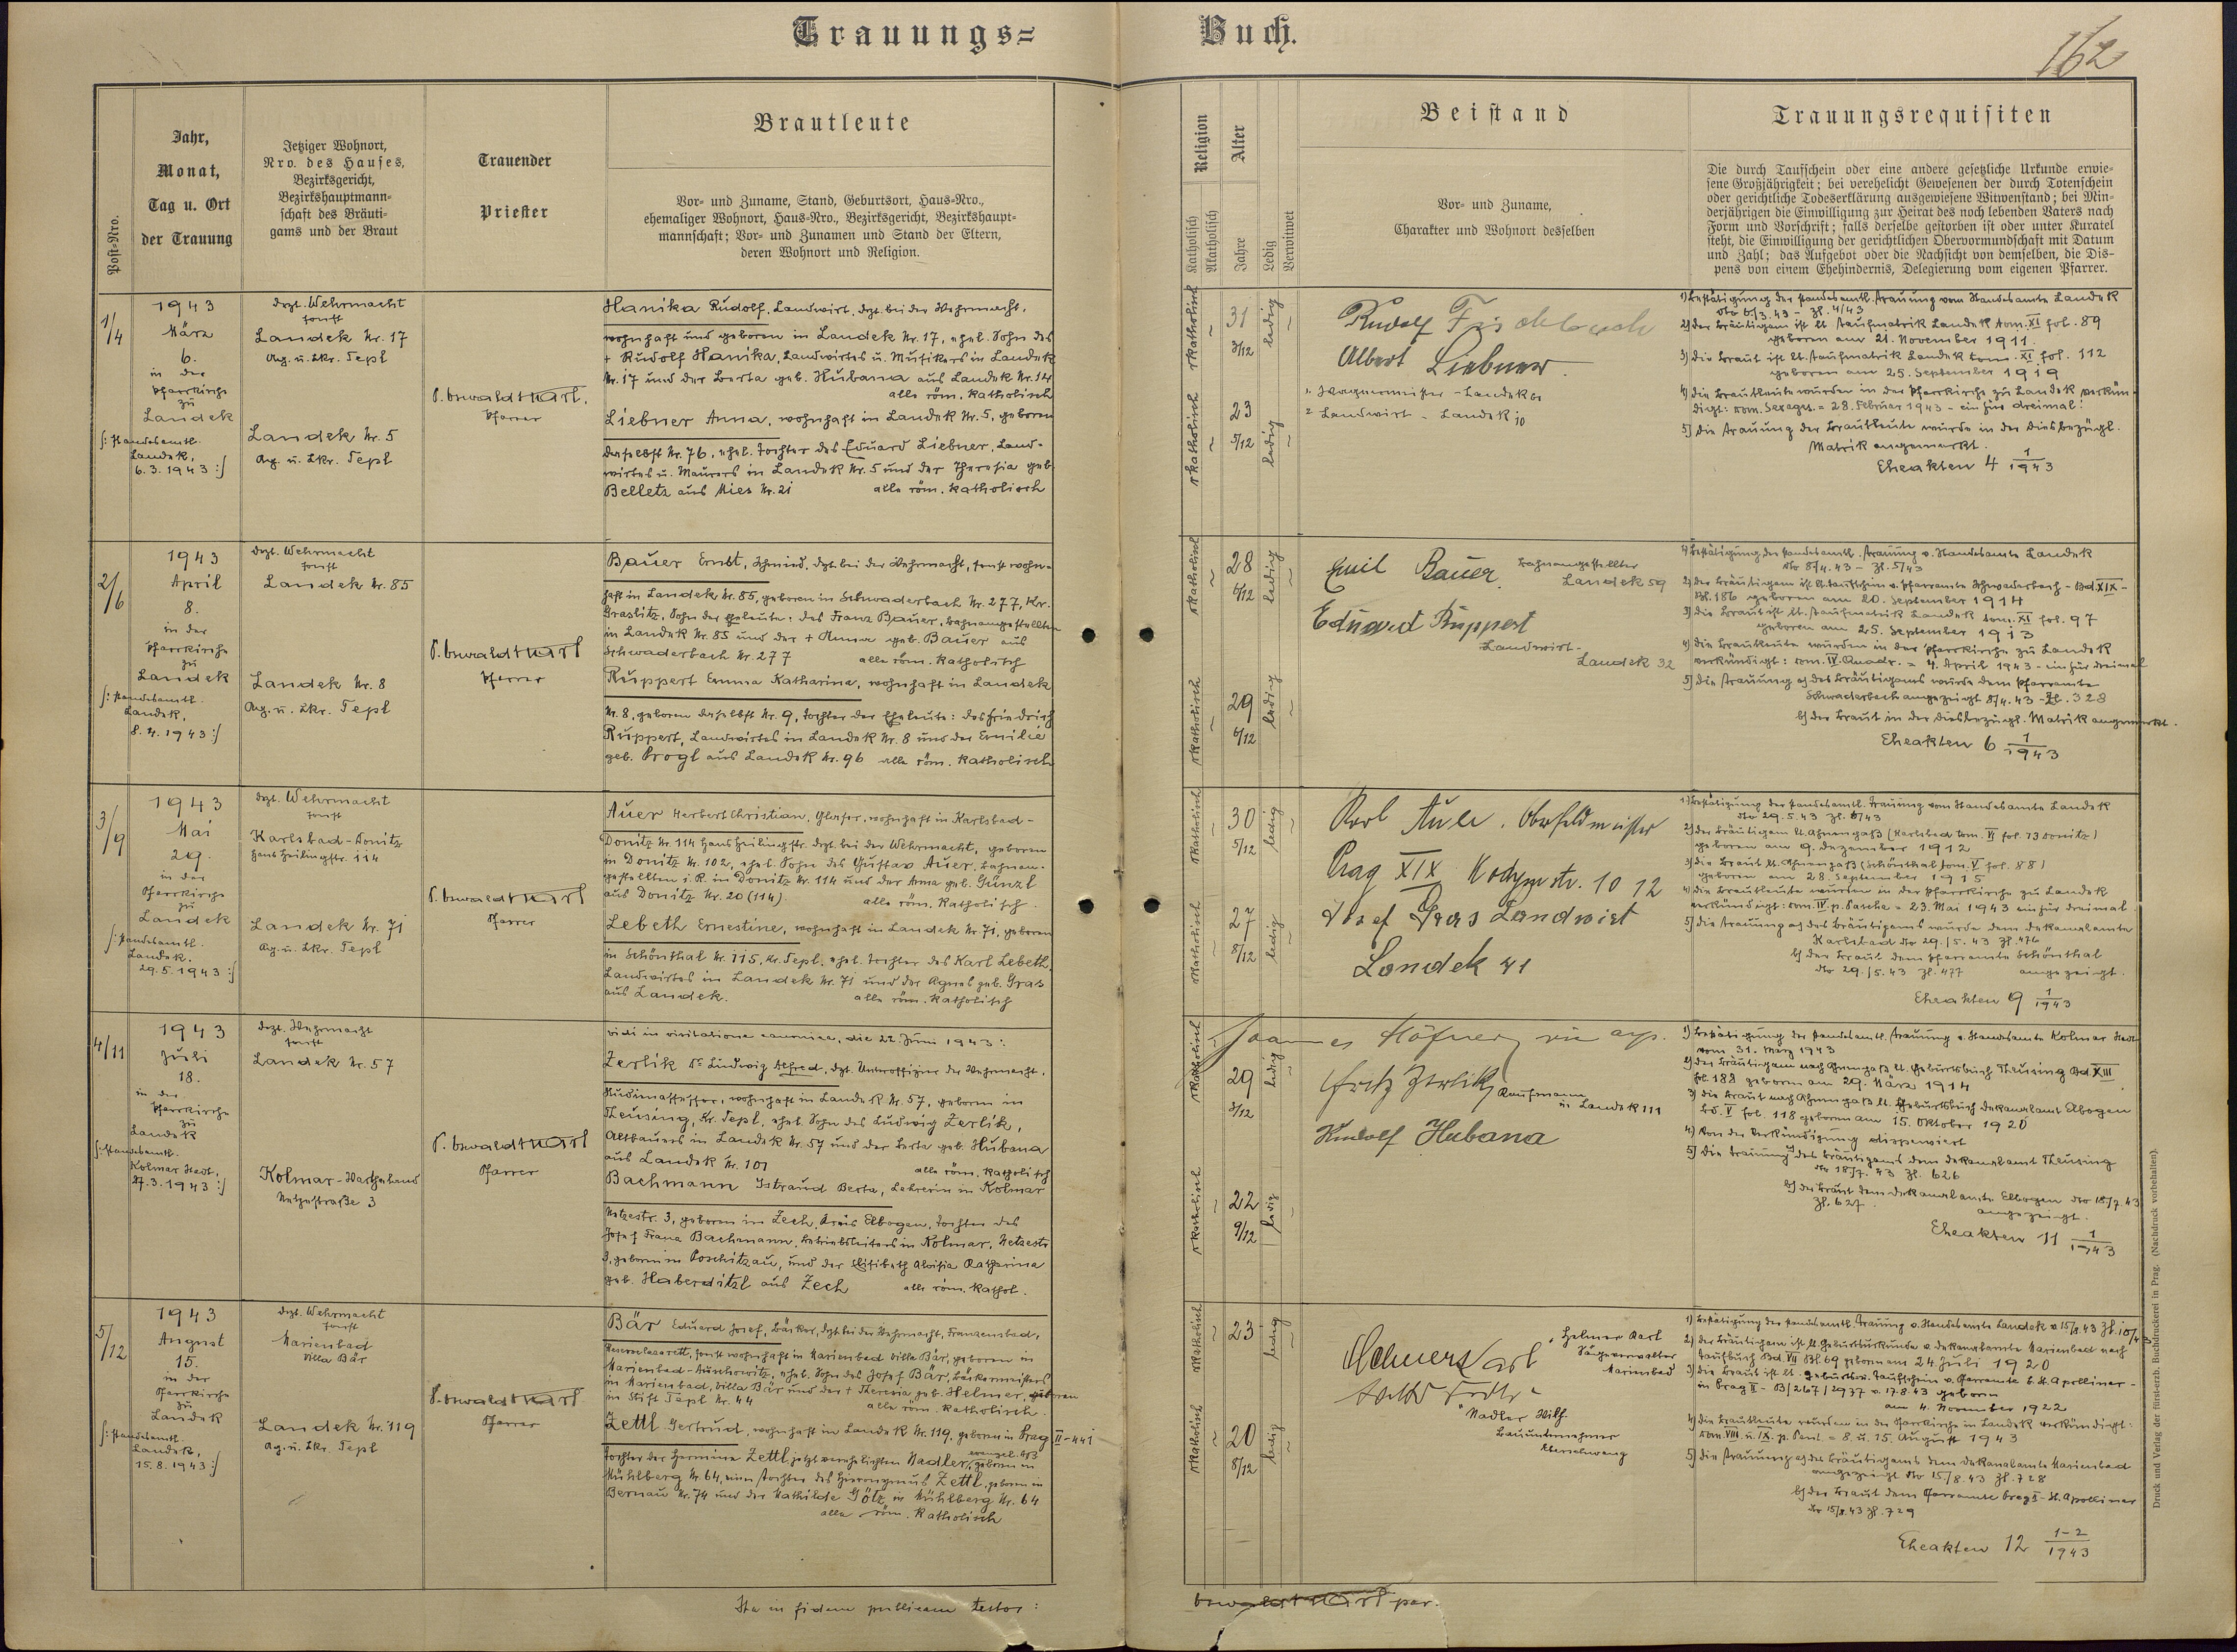 Trauungs=
Buch.
162
Post-Nro.
Jahr,
Monat,
Tag u. Ort
der Trauung
Jetziger Wohnort,
Nro. des Hauses,
Bezirksgericht,
Bezirkshauptmann-
schaft des Bräuti-
gams und der Braut
Trauender
Priester
Brautleute
Vor- und Zuname, Stand, Geburtsort, Haus-Nro.,
ehemaliger Wohnort, Haus-Nro., Bezirksgericht, Bezirkshaupt-
mannschaft; Vor- und Zunamen und Stand der Eltern,
deren Wohnort und Religion.
Religion
Katholisch
Akatholisch
Alter
Jahre
Ledig
Verwitwet
Beistand
Vor- und Zuname,
Charakter und Wohnort desselben
Trauungsrequisiten
Die durch Taufschein oder eine andere gesetzliche Urkunde erwie-
sene Großjährigkeit; bei verehelicht Gewesenen der durch Totenschein
oder gerichtliche Todeserklärung ausgewiesene Witwenstand; bei Min-
derjährigen die Einwilligung zur Heirat des noch lebenden Vaters nach
Form und Vorschrift; falls derselbe gestorben ist oder unter Kuratel
steht, die Einwilligung der gerichtlichen Obervormundschaft mit Datum
und Zahl; das Aufgebot oder die Nachsicht von demselben, die Dis-
pens von einem Ehehindernis, Delegierung vom eigenen Pfarrer.
1/4
1943
März
6.
in der
Pfarrkirche
zu
Landek
/: standesamtl.
Landek,
6.3.1943 :/
dzt. Wehrmacht
sonst
Landek Nr. 17
Ag. u. Lkr. Tepl
Landek Nr. 5
Ag. u. Lkr. Tepl
P. Oswald Karl,
Pfarrer
Hanika Rudolf, Landwirt, dzt. bei der Wehrmacht,
wohnhaft und geboren in Landek Nr. 17, ehel. Sohn des
+ Rudolf Hanika, Landwirtes u. Musikers in Landek
Nr. 17 und der Berta geb. Hubana aus Landek Nr. 14
alle röm. katholisch
Liebner Anna, wohnhaft in Landek Nr. 5, geboren
daselbst Nr. 76, ehel. Tochter des Eduard Liebner, Land-
wirtes u. Maurers in Landek Nr. 5 und der Theresia geb.
Belletz aus Mies Nr. 21 alle röm. katholisch
katholisch
31
3/12
ledig
katholisch
23
5/12
ledig
Rudolf Fischbach
Albert Liebner.
1. Wagnermeister - Landek
2 Landwirt - Landek 10
1) Bestätigung der standesamtl. Trauung vom Standesamte Landek
dto 6/3.43 - Zl. 4/43
2) der Bräutigam ist lt. Taufmatrik Landek tom. XI fol. 89
geboren am 21. November 1911.
3) die Braut ist lt. Taufmatrik Landek tom. XI fol. 112
geboren am 25. September 1919
4) die Brautleute wurden in der Pfarrkirche zu Landek verkün-
digt: Dom. Sexages. = 28. Februar 1943 - ein für dreimal.
5) die Trauung der Brautleute wurde in der diesbezügl.
Matrik angemerkt.
Eheakten 4 1/1943
2/6
1943
April
8.
in der
Pfarrkirche
zu
Landek
/: standesamtl.
Landek,
8.4.1943 :/
dzt. Wehrmacht
sonst
Landek Nr. 85
Landek Nr. 8
Ag. u. Lkr. Tepl
P. Oswald Karl
Pfarrer
Bauer Ernst, Schmied, dzt. bei der Wehrmacht, sonst wohn-
haft in Landek Nr. 85, geboren in Schwaderbach Nr. 277, Kr.
Graslitz, Sohn der Eheleute: des Franz Bauer, Bahnangestellten
in Landek Nr. 85 und der + Anna geb. Bauer aus
Schwaderbach Nr. 277 alle röm. katholisch
Ruppert Emma Katharina, wohnhaft in Landek
Nr. 8, geboren daselbst Nr. 9, Tochter der Eheleute: des Friedrich
Ruppert, Landwirtes in Landek Nr. 8 und der Emilie
geb. Progl aus Landek Nr. 96 alle röm. katholisch
katholisch
28
6/12
ledig
katholisch
29
6/12
ledig
Emil Bauer Bahnangestellter
Landek 59
Eduard Ruppert
Landwirt -
Landek 32
1) Bestätigung der standesamtl. Trauung v. Standesamte Landek
dto 8/4.43 - Zl. 5/43
2) der Bräutigam ist lt. Taufschein v. Pfarramte Schwaderbach - Bd. XIX -
Bl. 186 geboren am 20. September 1914
3) die Braut ist lt. Taufmatrik Landek tom. XI fol. 97
geboren am 25. September 1913
4) die Brautleute wurden in der Pfarrkirche zu Landek
verkündigt: Dom. IV. Quadr. = 4. April 1943 - ein für dreimal
5) die Trauung a) des Bräutigams wurde dem Pfarramte
Schwaderbach angezeigt 8/4.43 - Zl. 328
b) der Braut in der diesbezügl. Matrik angemerkt.
Eheakten 6 1/1943
3/9
1943
Mai
29.
in der
Pfarrkirche
zu
Landek
/: standesamtl.
Landek.
29.5.1943 :/
dzt. Wehrmacht
sonst
Karlsbad-Donitz
Hans Heilingstr. 114
Landek Nr. 71
Ag. u. Lkr. Tepl
P. Oswald Karl
Pfarrer
Auer Herbert Christian, Glaser, wohnhaft in Karlsbad-
Donitz Nr. 114 Hans Heilingstr. dzt. bei der Wehrmacht, geboren
in Donitz Nr. 102, ehel. Sohn des Gustav Auer, Bahnan-
gestellten i. R. in Donitz Nr. 114 und der Anna geb. Günzl
aus Donitz Nr. 20 (114) alle röm. katholisch.
Lebeth Ernestine, wohnhaft in Landek Nr. 71, geboren
in Schönthal Nr. 115, Kr. Tepl, ehel. Tochter des Karl Lebeth,
Landwirtes in Landek Nr. 71 und der Agnes geb. Gras
aus Landek. alle röm. katholisch
katholisch
30
5/12
ledig
katholisch
27
8/12
ledig
Karl Auer. Oberfeldmeister
Prag XIX Kodymstr. 1012
Josef Gras Landwirt
Landek 41
1) Bestätigung der standesamtl. Trauung vom Standesamte Landek
dto 29.5.43 Zl. 6/43
2) der Bräutigam lt. Ahnenpaß (Karlsbad tom. VI fol. 73 Donitz)
geboren am 9. Dezember 1912
3) die Braut lt. Ahnenpaß (Schönthal tom. V fol. 88)
geboren am 28. September 1915
4) die Brautleute wurden in der Pfarrkirche zu Landek
verkündigt: Dom. IV. p. Pascha = 23. Mai 1943 ein für dreimal
5) die Trauung a) des Bräutigams wurde dem Dekanalamte
Karlsbad dto 29./5.43 Zl. 476
b) der Braut dem Pfarramte Schönthal
dto 29./5.43 Zl. 477 angezeigt.
Eheakten 9 1/1943
4/11
1943
Juli
18.
in der
Pfarrkirche
zu
Landek
/: standesamtl.
Kolmar Stadt,
27.3.1943 :/
dzt. Wehrmacht
sonst
Landek Nr. 57
Kolmar-Wartheland
Netzestraße 3
P. Oswald Karl
Pfarrer
vidi in visitatione canonica, die 22. Juni 1943:
Joannes Höfner
Zerlik Dr. Ludwig Alfred, dzt. Unteroffizier der Wehrmacht.
Studienassessor, wohnhaft in Landek Nr. 57, geboren in
Theusing, Kr. Tepl, ehel. Sohn des Ludwig Zerlik,
Altbauers in Landek Nr. 57 und der Berta geb. Hubana
aus Landek Nr. 101 alle röm. katholisch
Bachmann Istraud Berta, Lehrerin in Kolmar
Netzestr. 3, geboren in Zech, Kreis Elbogen, Tochter des
Josef Franz Bachmann, Betriebsleiters in Kolmar, Netzestr.
3, geboren in Poschitzau, und der Elisabeth Aloisia Katharina
geb. Haberditzl aus Zech alle röm. kathol.
katholisch
29
3/12
ledig
katholisch
22
9/12
ledig
Fritz Zerlik, Kaufmann
in Landek 111
Rudolf Hubana
1) Bestätigung der standesamtl. Trauung v. Standesamte Kolmar Stadt
vom 31. März 1943
2) der Bräutigam nach Ahnenpaß lt. Geburtsbuch Theusing Bd. XIII
fol. 188 geboren am 29. März 1914
3) die Braut nach Ahnenpaß lt. Geburtsbuch Dekanalamt Elbogen
Bd. V fol. 118 geboren am 15. Oktober 1920
4) Von der Verkündigung dispensiert
5) Die Trauung a) des Bräutigams dem Dekanalamt Theusing
dto 18/7.43 Zl. 626
b) der Braut dem Dekanalamte Elbogen dto 18/7.43
Zl. 627 angezeigt.
Eheakten 11 1/1943
5/12
1943
August
15.
in der
Pfarrkirche
zu
Landek
/: standesamtl.
Landek,
15.8.1943 :/
dzt. Wehrmacht
sonst
Marienbad
Villa Bär
Landek Nr. 119
Ag. u. Lkr. Tepl
P. Oswald Karl
Pfarrer
Bär Eduard Josef, Bäcker, dzt. bei der Wehrmacht, Franzensbad,
Reservelazarett, sonst wohnhaft in Marienbad Villa Bär, geboren in
Marienbad-Auschowitz, ehel. Sohn des Josef Bär, Bäckermeisters
in Marienbad, Villa Bär und der + Theresia geb. Helmer, geboren
in Stift Tepl Nr. 44 alle röm. katholisch.
Zettl Gertrud, wohnhaft in Landek Nr. 119, geboren in Prag II-441
Tochter der Hermine Zettl, jetzt verehelichten Nadler, geboren in
Mühlberg Nr. 64, einer Tochter des Hieronymus Zettl, geboren in
Bernau Nr. 74 und der Mathilde Götz in Mühlberg Nr. 64
alle röm. katholisch
katholisch
23
ledig
katholisch
20
8/12
ledig
Helmer Karl
1 Helmer Karl
Sägeverwalter
Marienbad
2 Nadler Wilh.
Bauunternehmer
1) Bestätigung der standesamtl. Trauung v. Standesamte Landek v. 15/8.43 Zl. 10/43
2) der Bräutigam ist lt. Geburtsurkunde v. Dekanalamte Marienbad nach
Taufbuch Bd. VII Bl. 69 geboren am 24 Juli 1920
3) die Braut ist lt. Geburts- u. Taufschein v. Pfarramte b. St. Apollinar -
in Prag II - B/267/1937 v. 17.8.43 geboren
am 4. November 1922
4) die Brautleute wurden in der Pfarrkirche in Landek verkündigt:
Dom. VIII. u. IX. p. Pent. = 8. u. 15. August 1943
5) die Trauung a) des Bräutigams dem Dekanalamte Marienbad
angezeigt dto 15/8.43 Zl. 728
b) der Braut dem Pfarramte Prag II - St. Apollinar
dto 15/8.43 Zl. 729
Eheakten 12 1-2/1943
Ita in fidem publicam testor:
Oswald Karl par.
Druck und Verlag der fürst-erzb. Buchdruckerei in Prag. (Nachdruck vorbehalten).